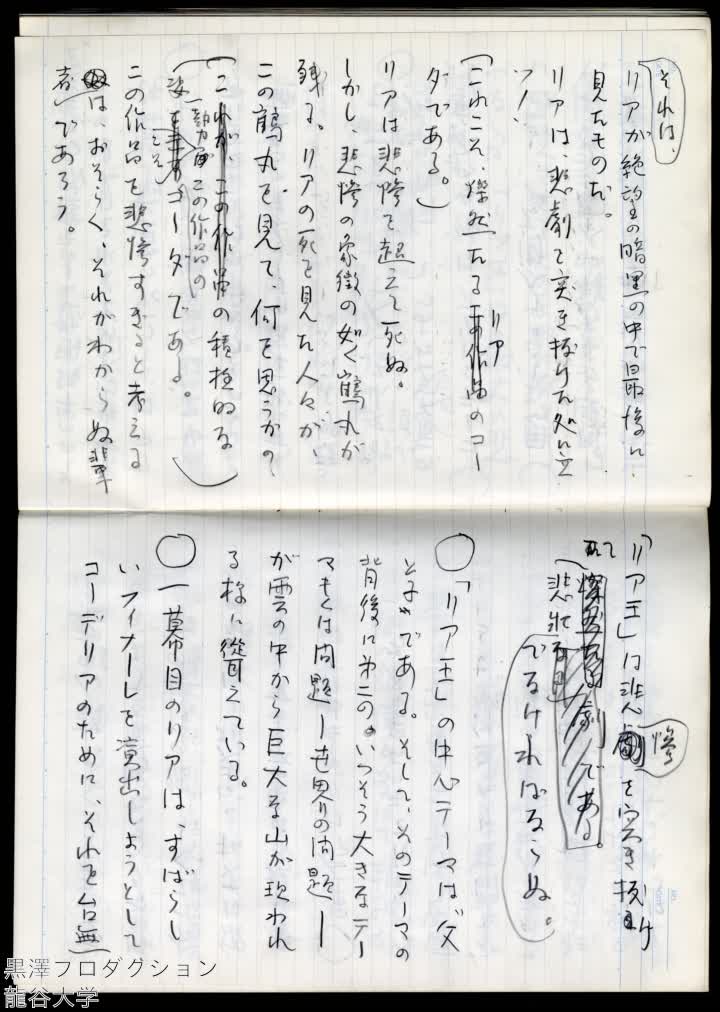 それは、
リアが絶望の暗黒の中で最後に
見たものだ。
リアは、悲劇を突き抜けた処に立
つ！
（これこそ、燦然たるリアのコー
ダである。）
リアは悲惨を超えて死ぬ。
しかし、悲惨の象徴の如く鶴丸が
残る。リアの死を見た人々が、
この鶴丸を見て、何を思うか。
（これが、この作品の積極的な
この作品の
コーダである。
この作品を悲惨すぎると考える
者は、おそらく、それがわからぬ輩
であろう。
「リア王」は悲惨を突き抜け
て
燦然たる劇である。
悲壮
でなければならぬ。
○「リア王」の中心テーマは父
と子である。そして、そのテーマの
背後に第二の。いっそう大きなテー
マもくは問題ー世界の問題ー
が雲の中から巨大な山が現われ
る様に聳えている。
○一幕目のリアは、すばらし
いフィナーレを演出しようとして
コーデリアのために、それを台無
黒澤プロダクション
龍谷大学